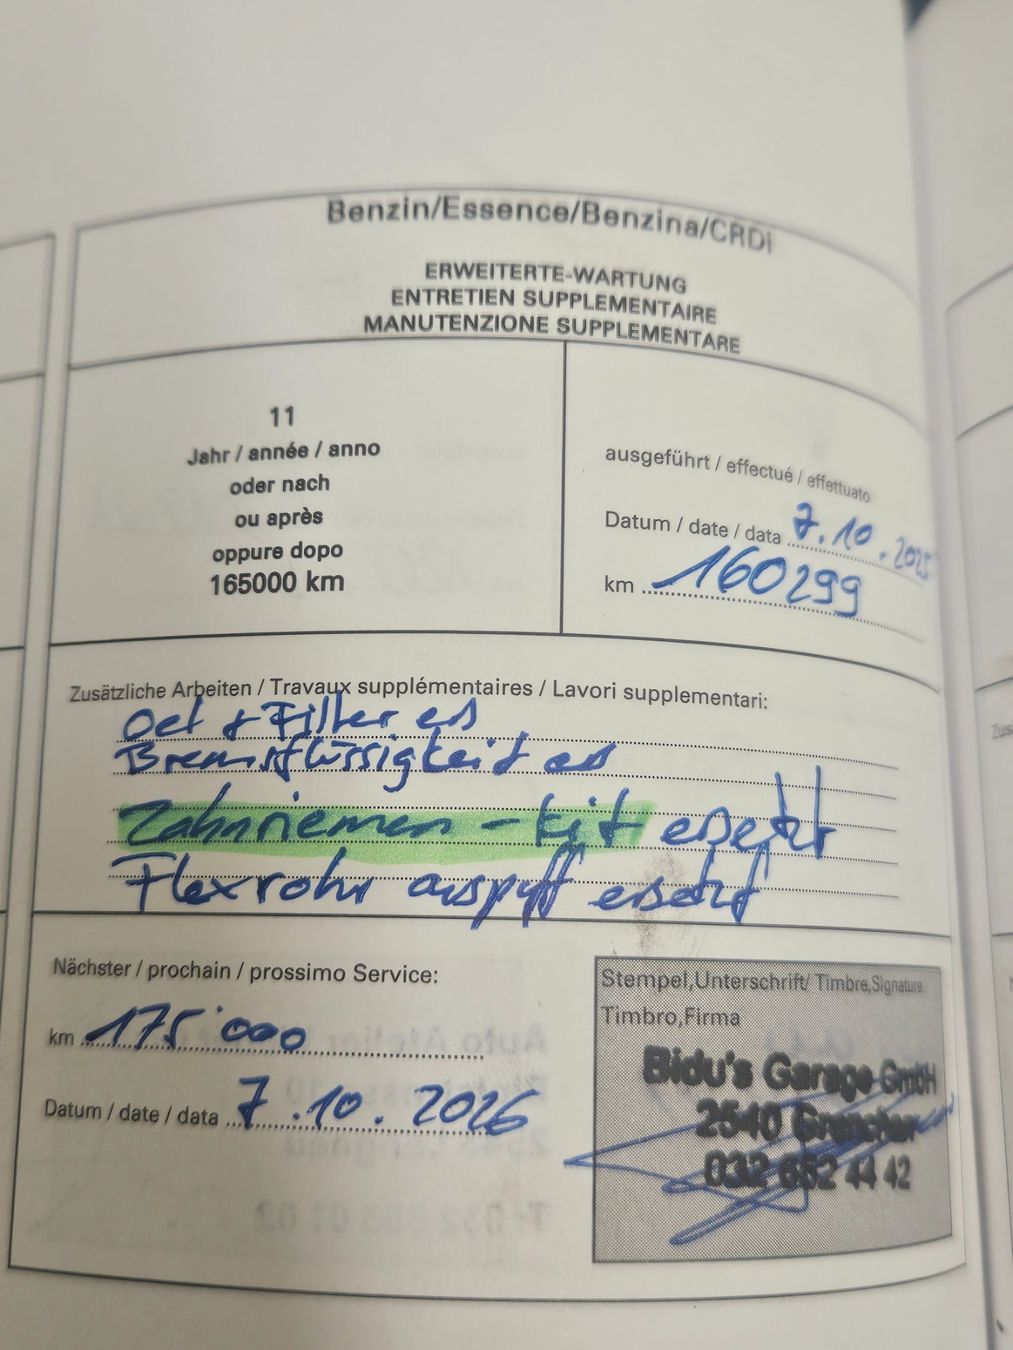 Benzin/Essence/Benzina/CRDi
ERWEITERTE-WARTUNG
ENTRETIEN SUPPLEMENTAIRE
MANUTENZIONE SUPPLEMENTARE
11
Jahr / année / anno
oder nach
ou après
oppure dopo
165000 km
ausgeführt / effectué / effettuato
Datum / date / data 7.10.2025
km 160299
Zusätzliche Arbeiten / Travaux supplémentaires / Lavori supplementari:
Oel + Filter es
Bremsflüssigkeit es
Zahnriemen - kit ersetzt
Flexrohr auspuff ersetzt
Nächster / prochain / prossimo Service:
km 175'000
Datum / date / data 7.10.2026
Stempel,Unterschrift/ Timbre,Signature
Timbro,Firma
Bidu's Garage GmbH
2540 Grenchen
032 652 44 42